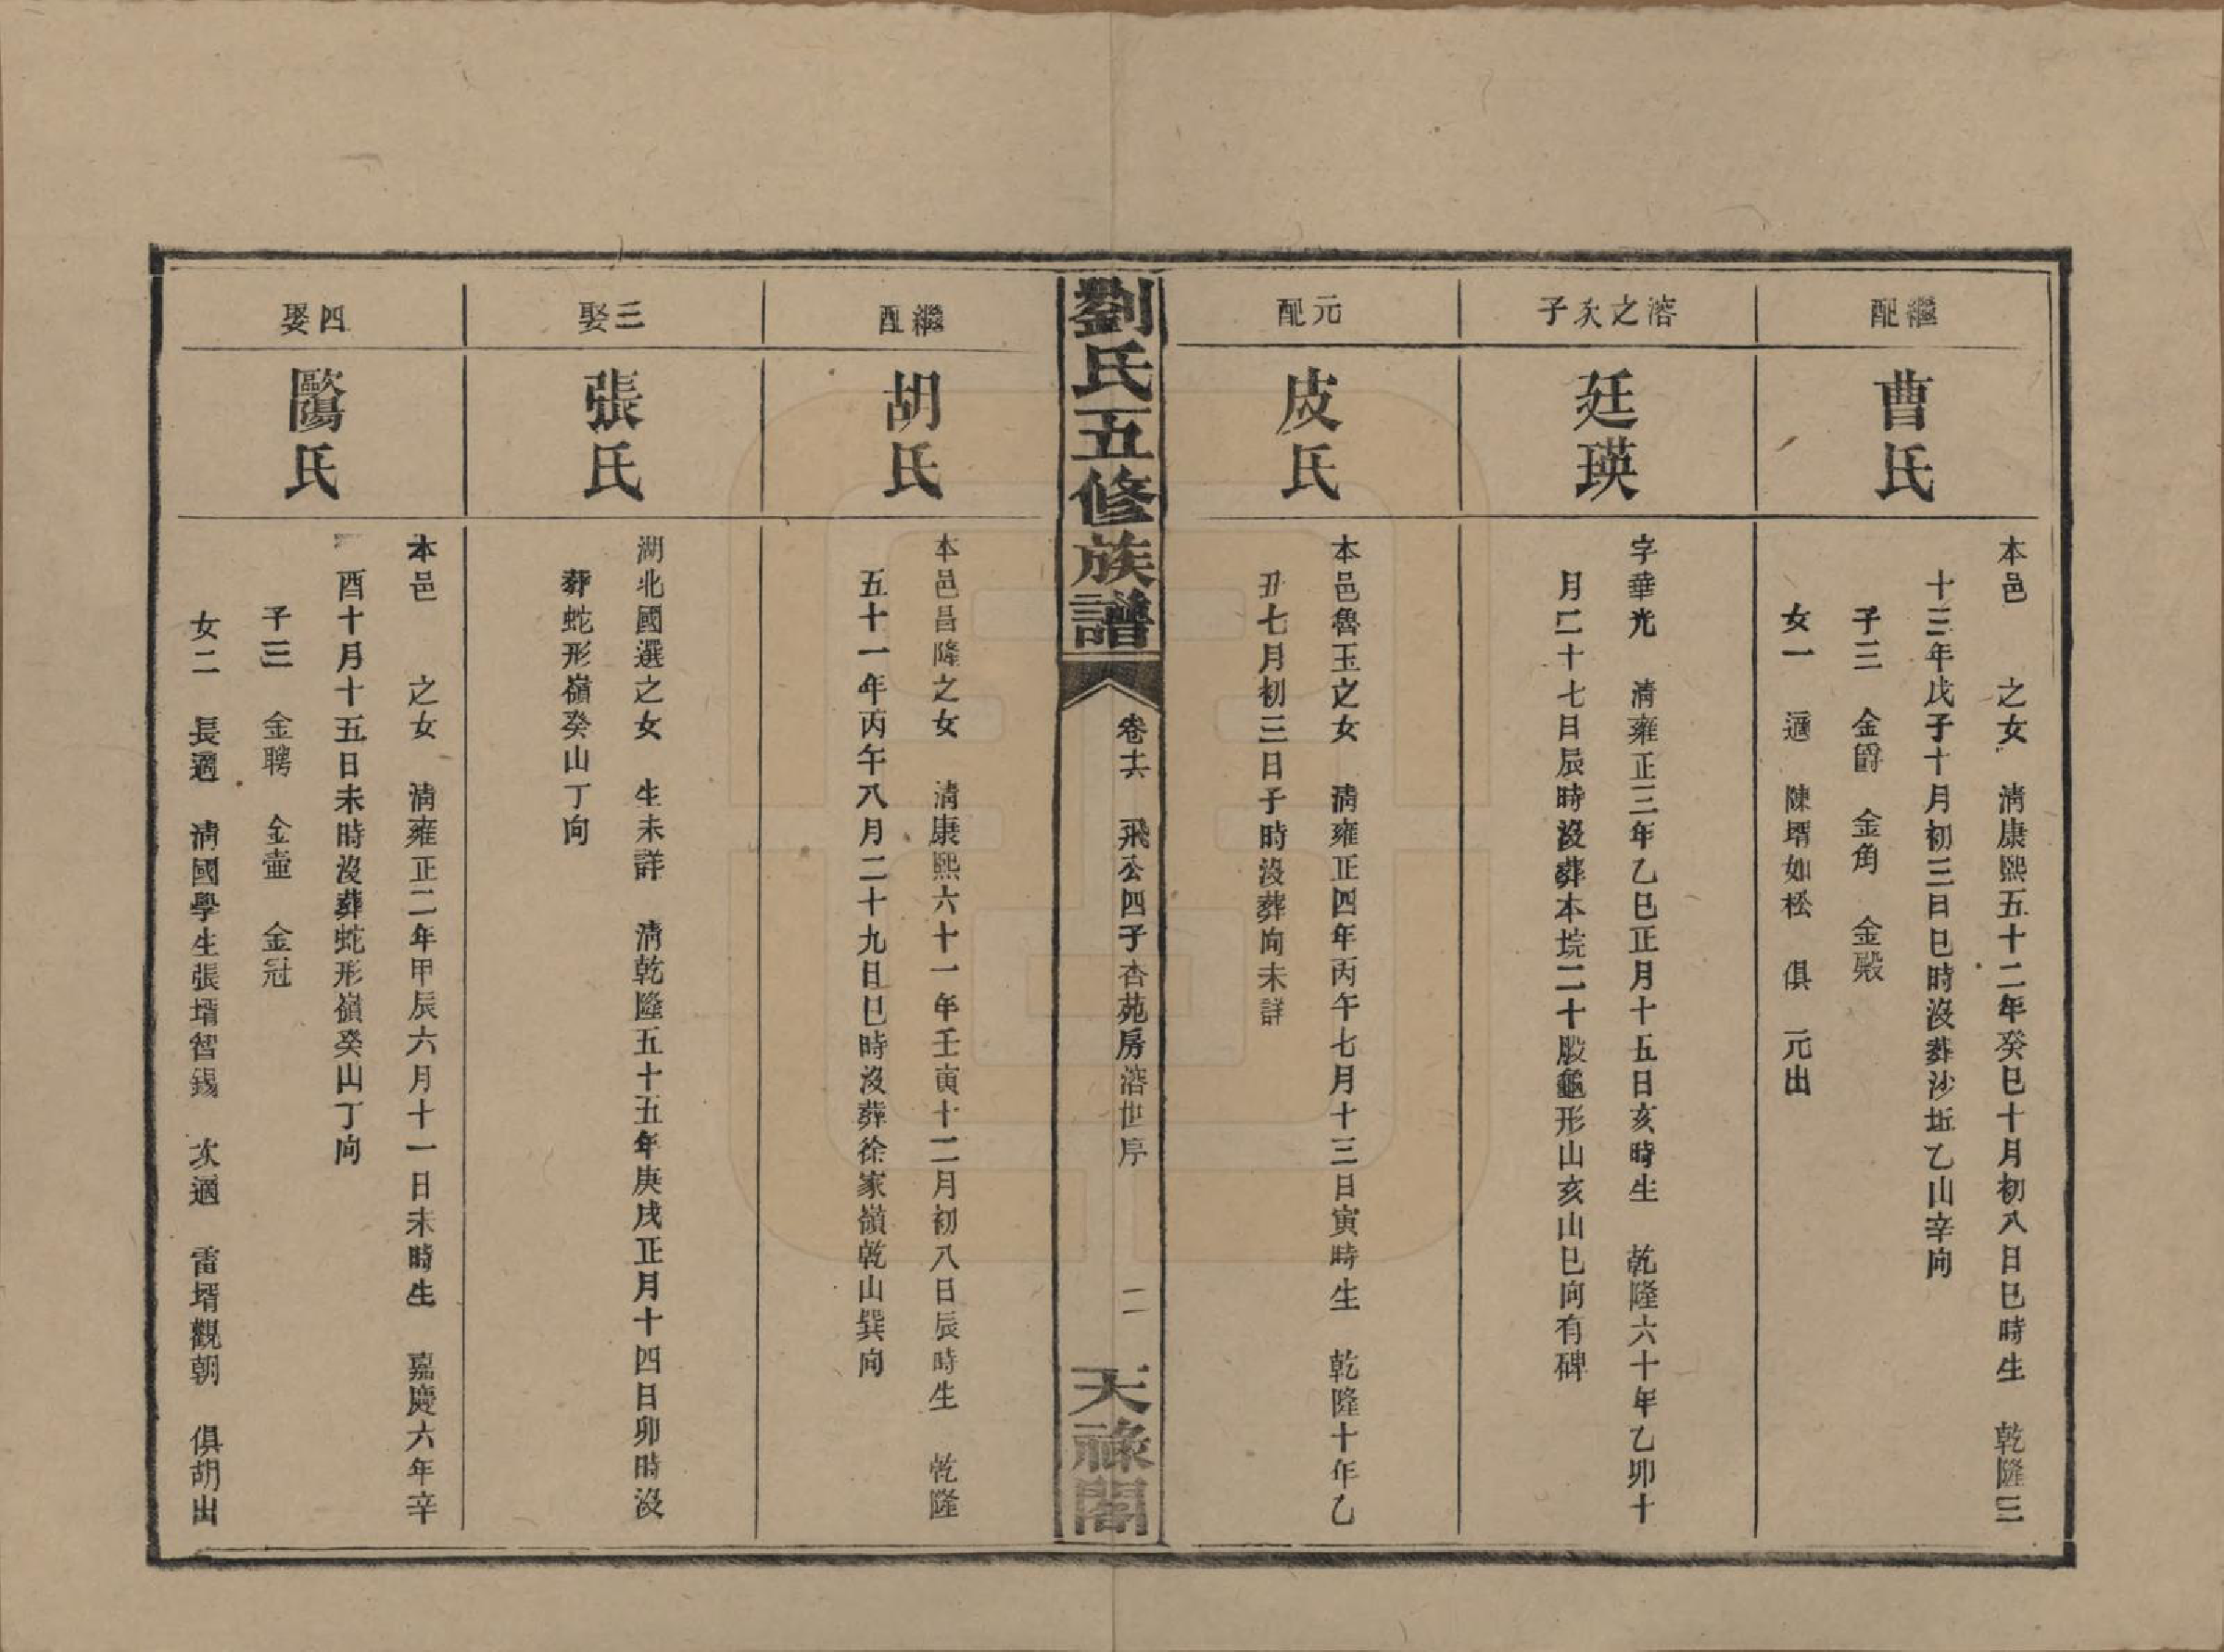 繼配
曹氏
本邑　之女　清康熙五十二年癸巳十月初八日巳時生　乾隆三
十三年戊子十月初三日巳時沒葬沙坵乙山辛向
子三　金爵　金角　金殿
女一　適　陳壻如松　俱　元出
溶之次子
廷瑛
字華光　清雍正三年乙巳正月十五日亥時生　乾隆六十年乙卯十
月二十七日辰時沒葬本境二十股龜形山亥山巳向有碑
元配
皮氏
本邑魯玉之女　清雍正四年丙午七月十三日寅時生　乾隆十年乙
丑七月初三日子時沒葬向未詳
劉氏五修族譜
卷十六　飛公四子杏苑房溶世序　二
天祿閣
繼配
胡氏
本邑昌隆之女　清康熙六十一年壬寅十二月初八日辰時生　乾隆
五十一年丙午八月二十九日巳時沒葬徐家嶺乾山巽向
三娶
張氏
湖北國選之女　生未詳　清乾隆五十五年庚戌正月十四日卯時沒
葬蛇形嶺癸山丁向
四娶
歐陽氏
本邑　之女　清雍正二年甲辰六月十一日未時生　嘉慶六年辛
酉十月十五日未時沒葬蛇形嶺癸山丁向
子三　金聘　金壷　金冠
女二　長適　清國學生張壻智錫　次適　雷壻觀朝　俱胡出